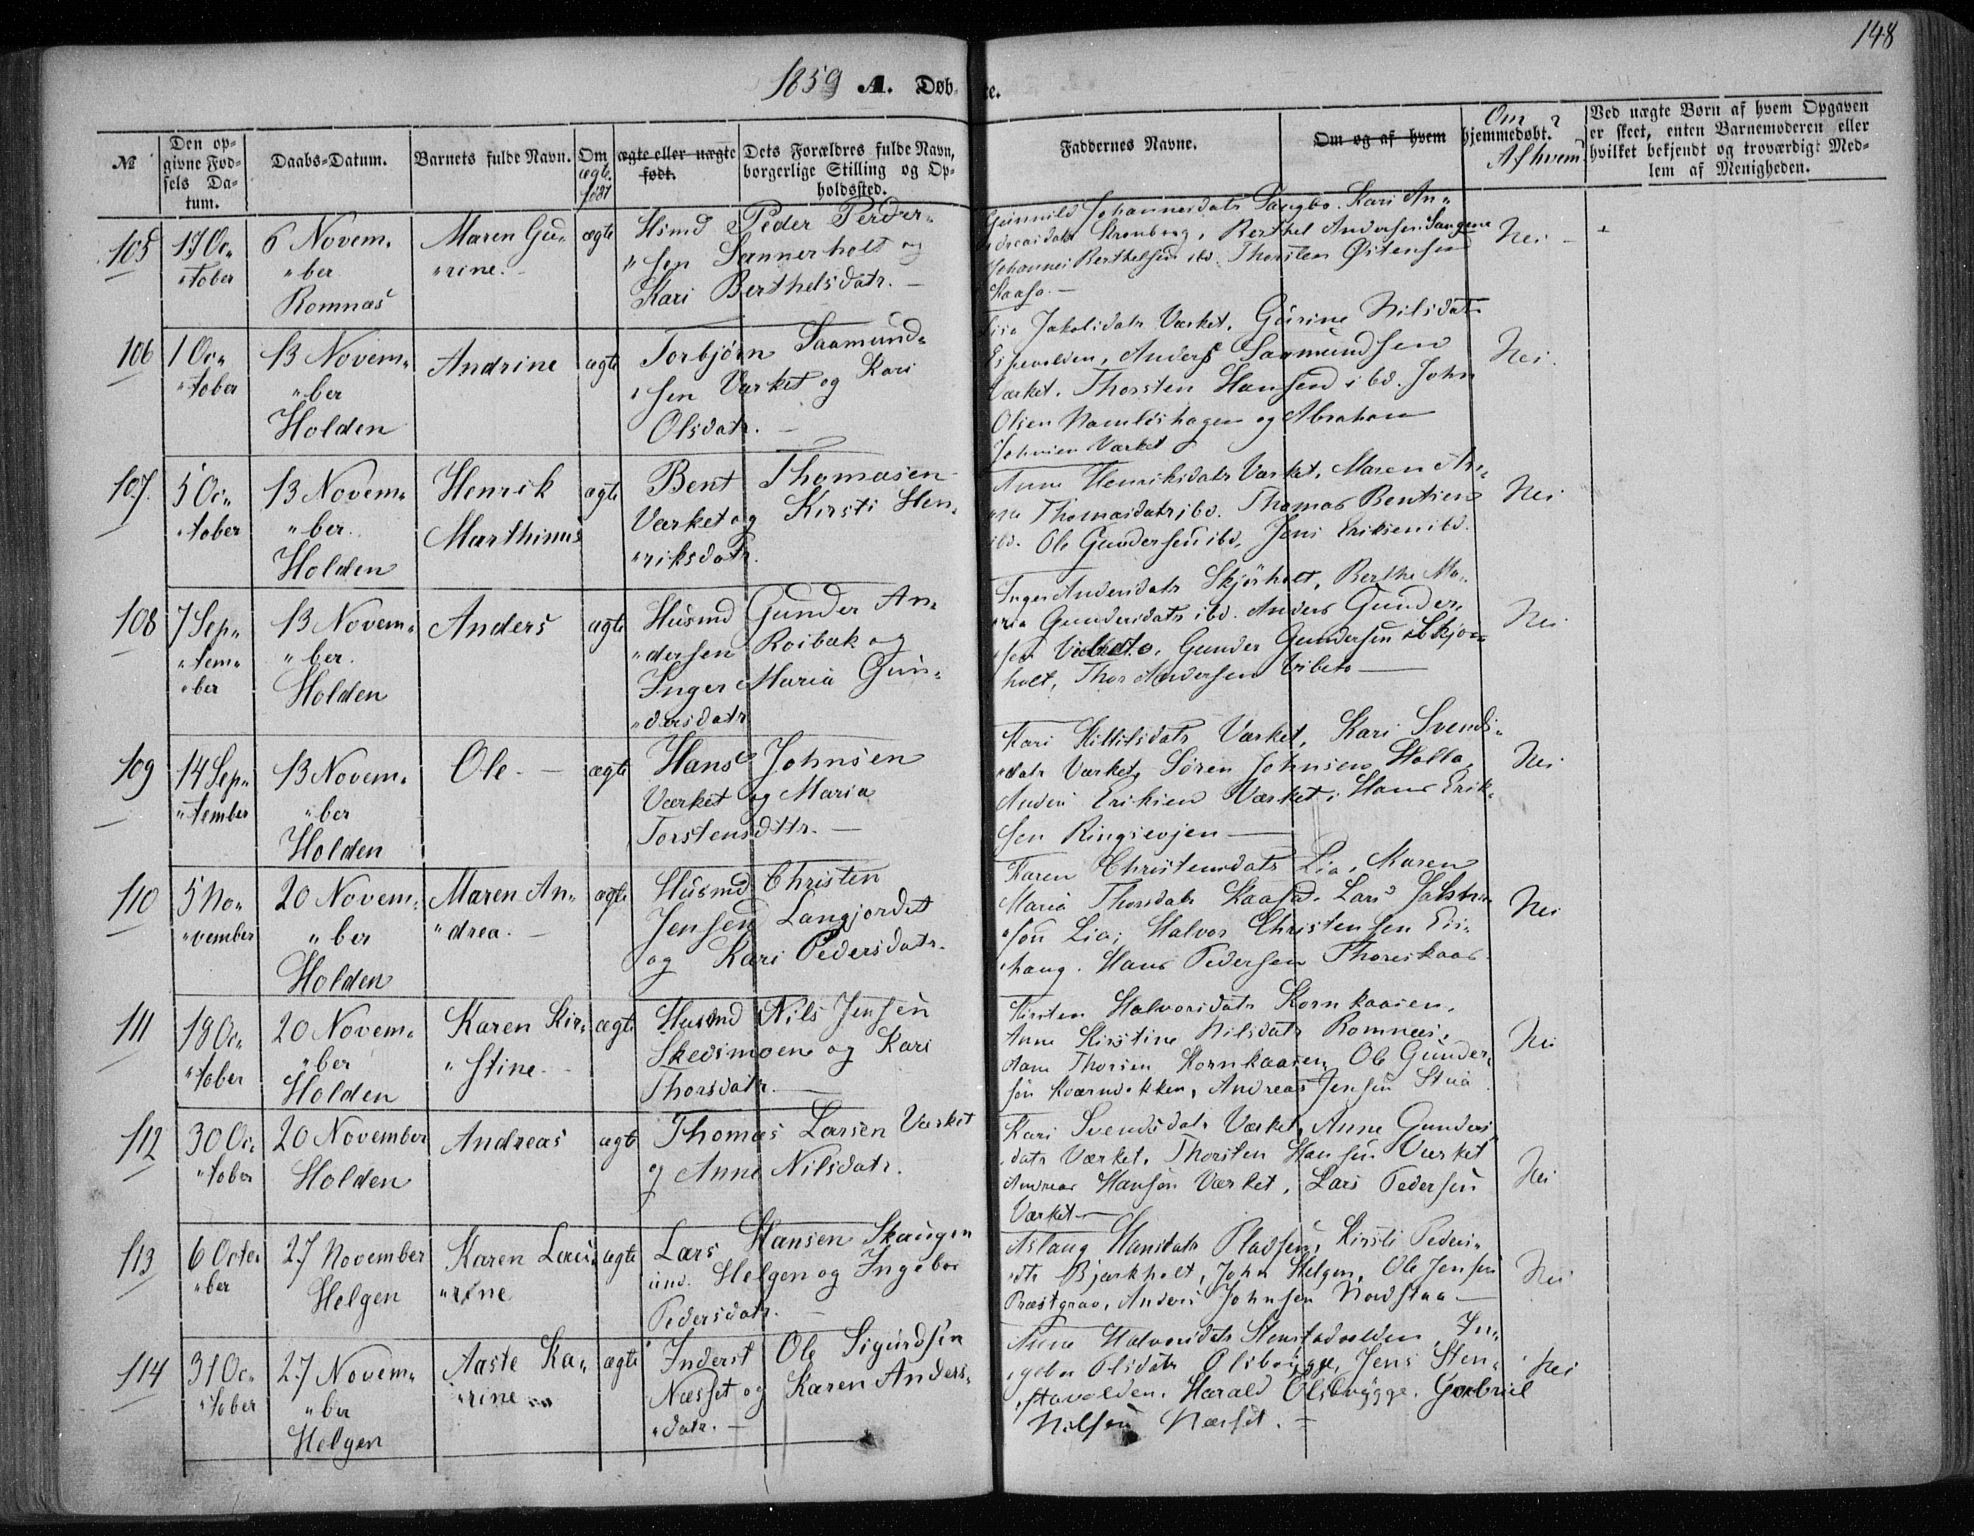 148
1859 A. Døbte.
№
Den opgivne Fødsels Datum.
Daabs-Datum.
Barnets fulde Navn.
Om ægte født
ægte eller uægte født.
Dets Forældres fulde Navn, borgerlige Stilling og Opholdssted.
Faddernes Navne.
Om og af hvem
Om hjemmedøbt? Af hvem
Ved uægte Børn af hvem Opgaven er skeet, enten Barnemoderen eller hvilket bekjendt og troværdigt Medlem af Menigheden.
105
17 Oc„
„tober
6 Novem„
„ber
Romnæs
Maren Gu„
„rine.
ægte
Hsmd Peder Peder„
„sen Sannerholt og
Kari Berthelsdatr. —
Gunnild Johannesdatr Sangbo. Kari An„
dreasdatr Strømborg, Berthel Andersen
Johannes Berthelsen ibd. Thorsten Østensen
Kaasa. —
Nei —
106
1 Oc„
„tober
13 Novem„
„ber
Holden
Andrine
ægte
Torbjørn Saamund„
„sen Værket og Kari
Olsdatr. —
Jakobsdatr Værket, Gurine Nilsdatr
Anders Saamundsen
Værket. Thorsten Hansen ibd. John
Olsen Namløshagen og Abraham
Værket
Nei.
107.
5 Oc„
„tober
13 Novem„
„ber.
Holden
Henrik
Marthinus
ægte
Bent Thomasen
Værket og Kirsti Hen„
„riksdatr.
Anne Henriksdatr Værket. Maren An„
„ne Thomasdatr ibd. Thomas Bentsen
ibd. Ole Gundersen ibd. Jens Eriksen ibd.
Nei
108
7 Sep„
„tem„
„ber
13 Novem„
„ber.
Holden
Anders
ægte
Husmd Gunder An„
„dersen Roibæk og
Inger Maria Gun„
„dersdatr
Inger Andersdatr Skjørholt, Berthe Ma„
„ria Gundersdatr ibd. Anders Gunder„
„sen Vibeto, Gunder Gundersen Skjør„
holt, Thor Andersen Vibeto —
Nei
109
14 Sep„
„tember
13 Novem„
„ber
Holden
Ole. —
ægte
Hans Johnsen
Værket og Maria
Torstensdttr. —
Kari Kittilsdatr Værket, Kari Svends„
„datr Værket, Søren Johnsen Holta,
Anders Eriksen Værket, Hans Erik„
sen Ringsevjen —
Nei
110
5 No„
„vember
20 Novem„
„ber
Holden
Maren An„
„drea. —
ægte
Husmd Christen
Jensen Langjordet
og Kari Pedersdatr.
Karen Christensdatr Lia, Maren
Maria Thorsdatr Kaasa. Lars
„sen Lia, Halvor Christensen
„haug. Hans Pedersen Thoreskaas
Nei
111
18 Oc„
„tober
20 Novem„
„ber
Holden
Karen Kir„
„stine.
ægte
Husmd Nils Jensen
Skedsmoene og Kari
Thorsdatr. —
Kirsten Halvorsdatr Kornkaasen,
Anne Kirstine Nilsdatr Romnæs,
Thorsen Kornkaasen, Ole Gunder„
sen Kværndokken, Andreas Jensen Stua
Nei
112
30 Oc„
„tober
20 November
Holden
Andreas
ægte
Thomas Larsen Værket
og Anne Nilsdatr.
Kari Svendsdatr Værket, Anne Gunders
datr Værket. Thorsten Hansen Værket
Andreas Hansen Værket, Lars Pedersen
Værket —
Nei
113
6 Octo„
„ber
27 November
Helgen
Karen Lau„
„rine
ægte
Lars Hansen Skaugen
und. Helgen og Ingebor
Pedersdatr. —
Aslaug Hansdatr Pladsen, Kirsti Peders„
„dtr Bjærkholt, John Helgen, Ole Jensen
Præstgrav, Anders Johnsen Nordstaa —
Nei
114
31 Oc„
„tober
27 Novem„
„ber
Helgen
Aaste Ka„
„rine
ægte
Inderst Ole Sigurdsen
Næsset og Karen Anders„
„datr. —
Anne Halvorsdatr Stenstadvolden, In„
„gebor Olsdatr Olsbrygge, Jens Sten„
„stavolden. Harald Olsbrygge. Gabriel
Nilsen Næsset. —
Nei